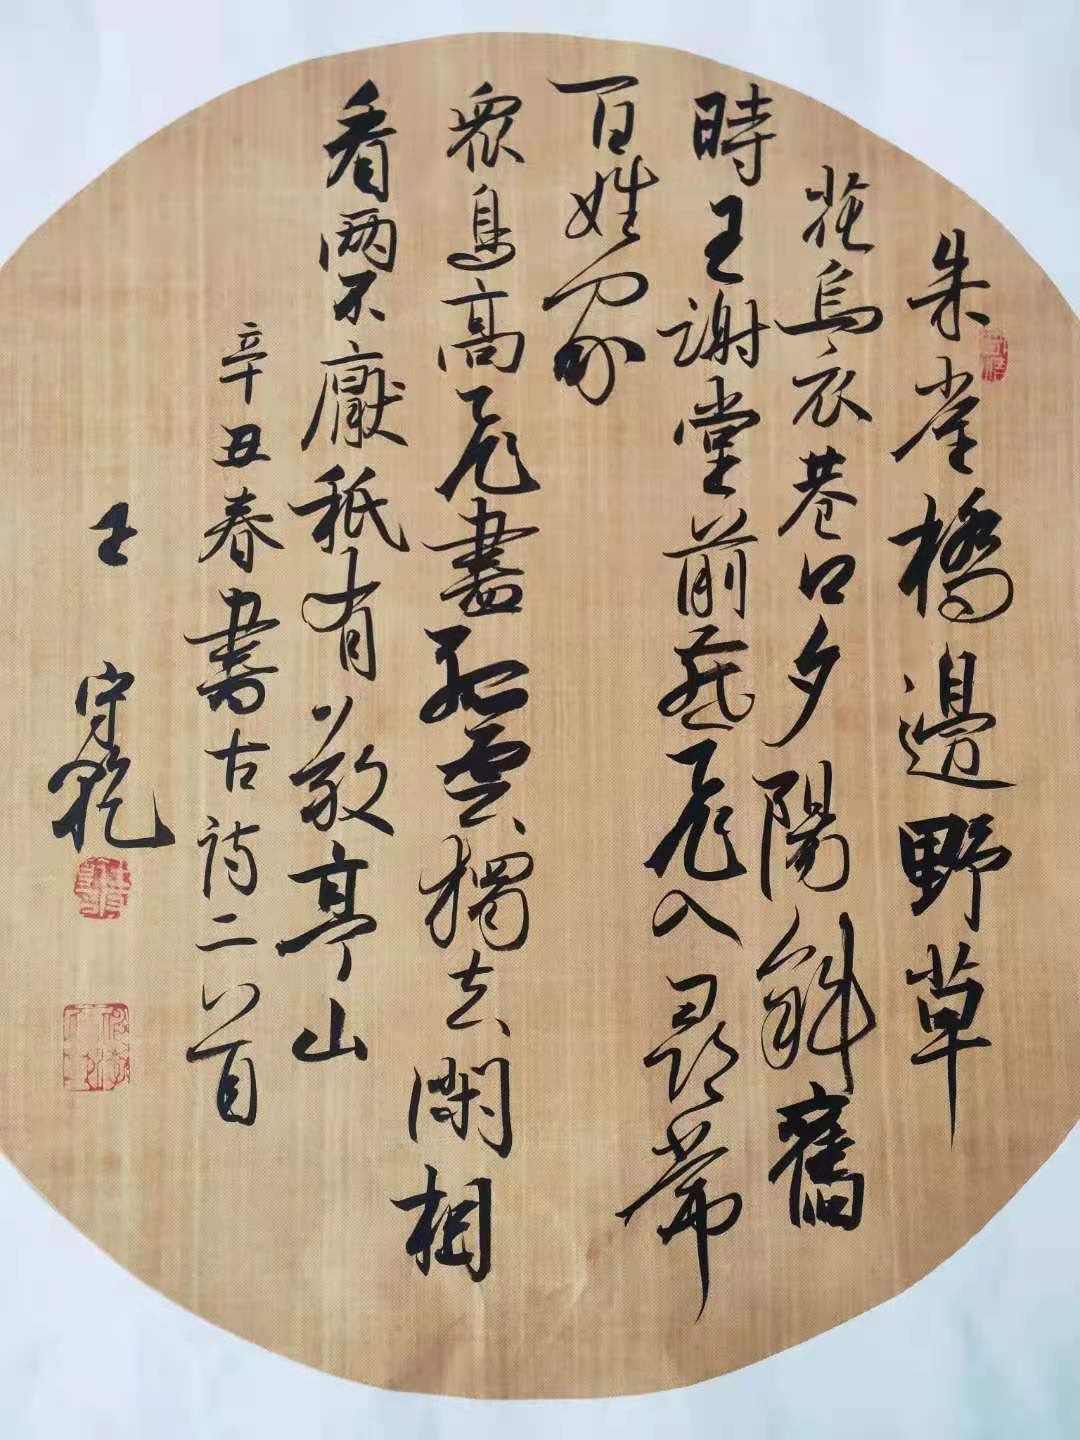 朱雀橋邊野草
花烏衣巷口夕陽斜舊
時王謝堂前燕飛入尋常
百姓家
眾鳥高飛盡孤雲獨去閑相
看兩不厭秖有敬亭山
辛丑春書古詩二首
王守乾